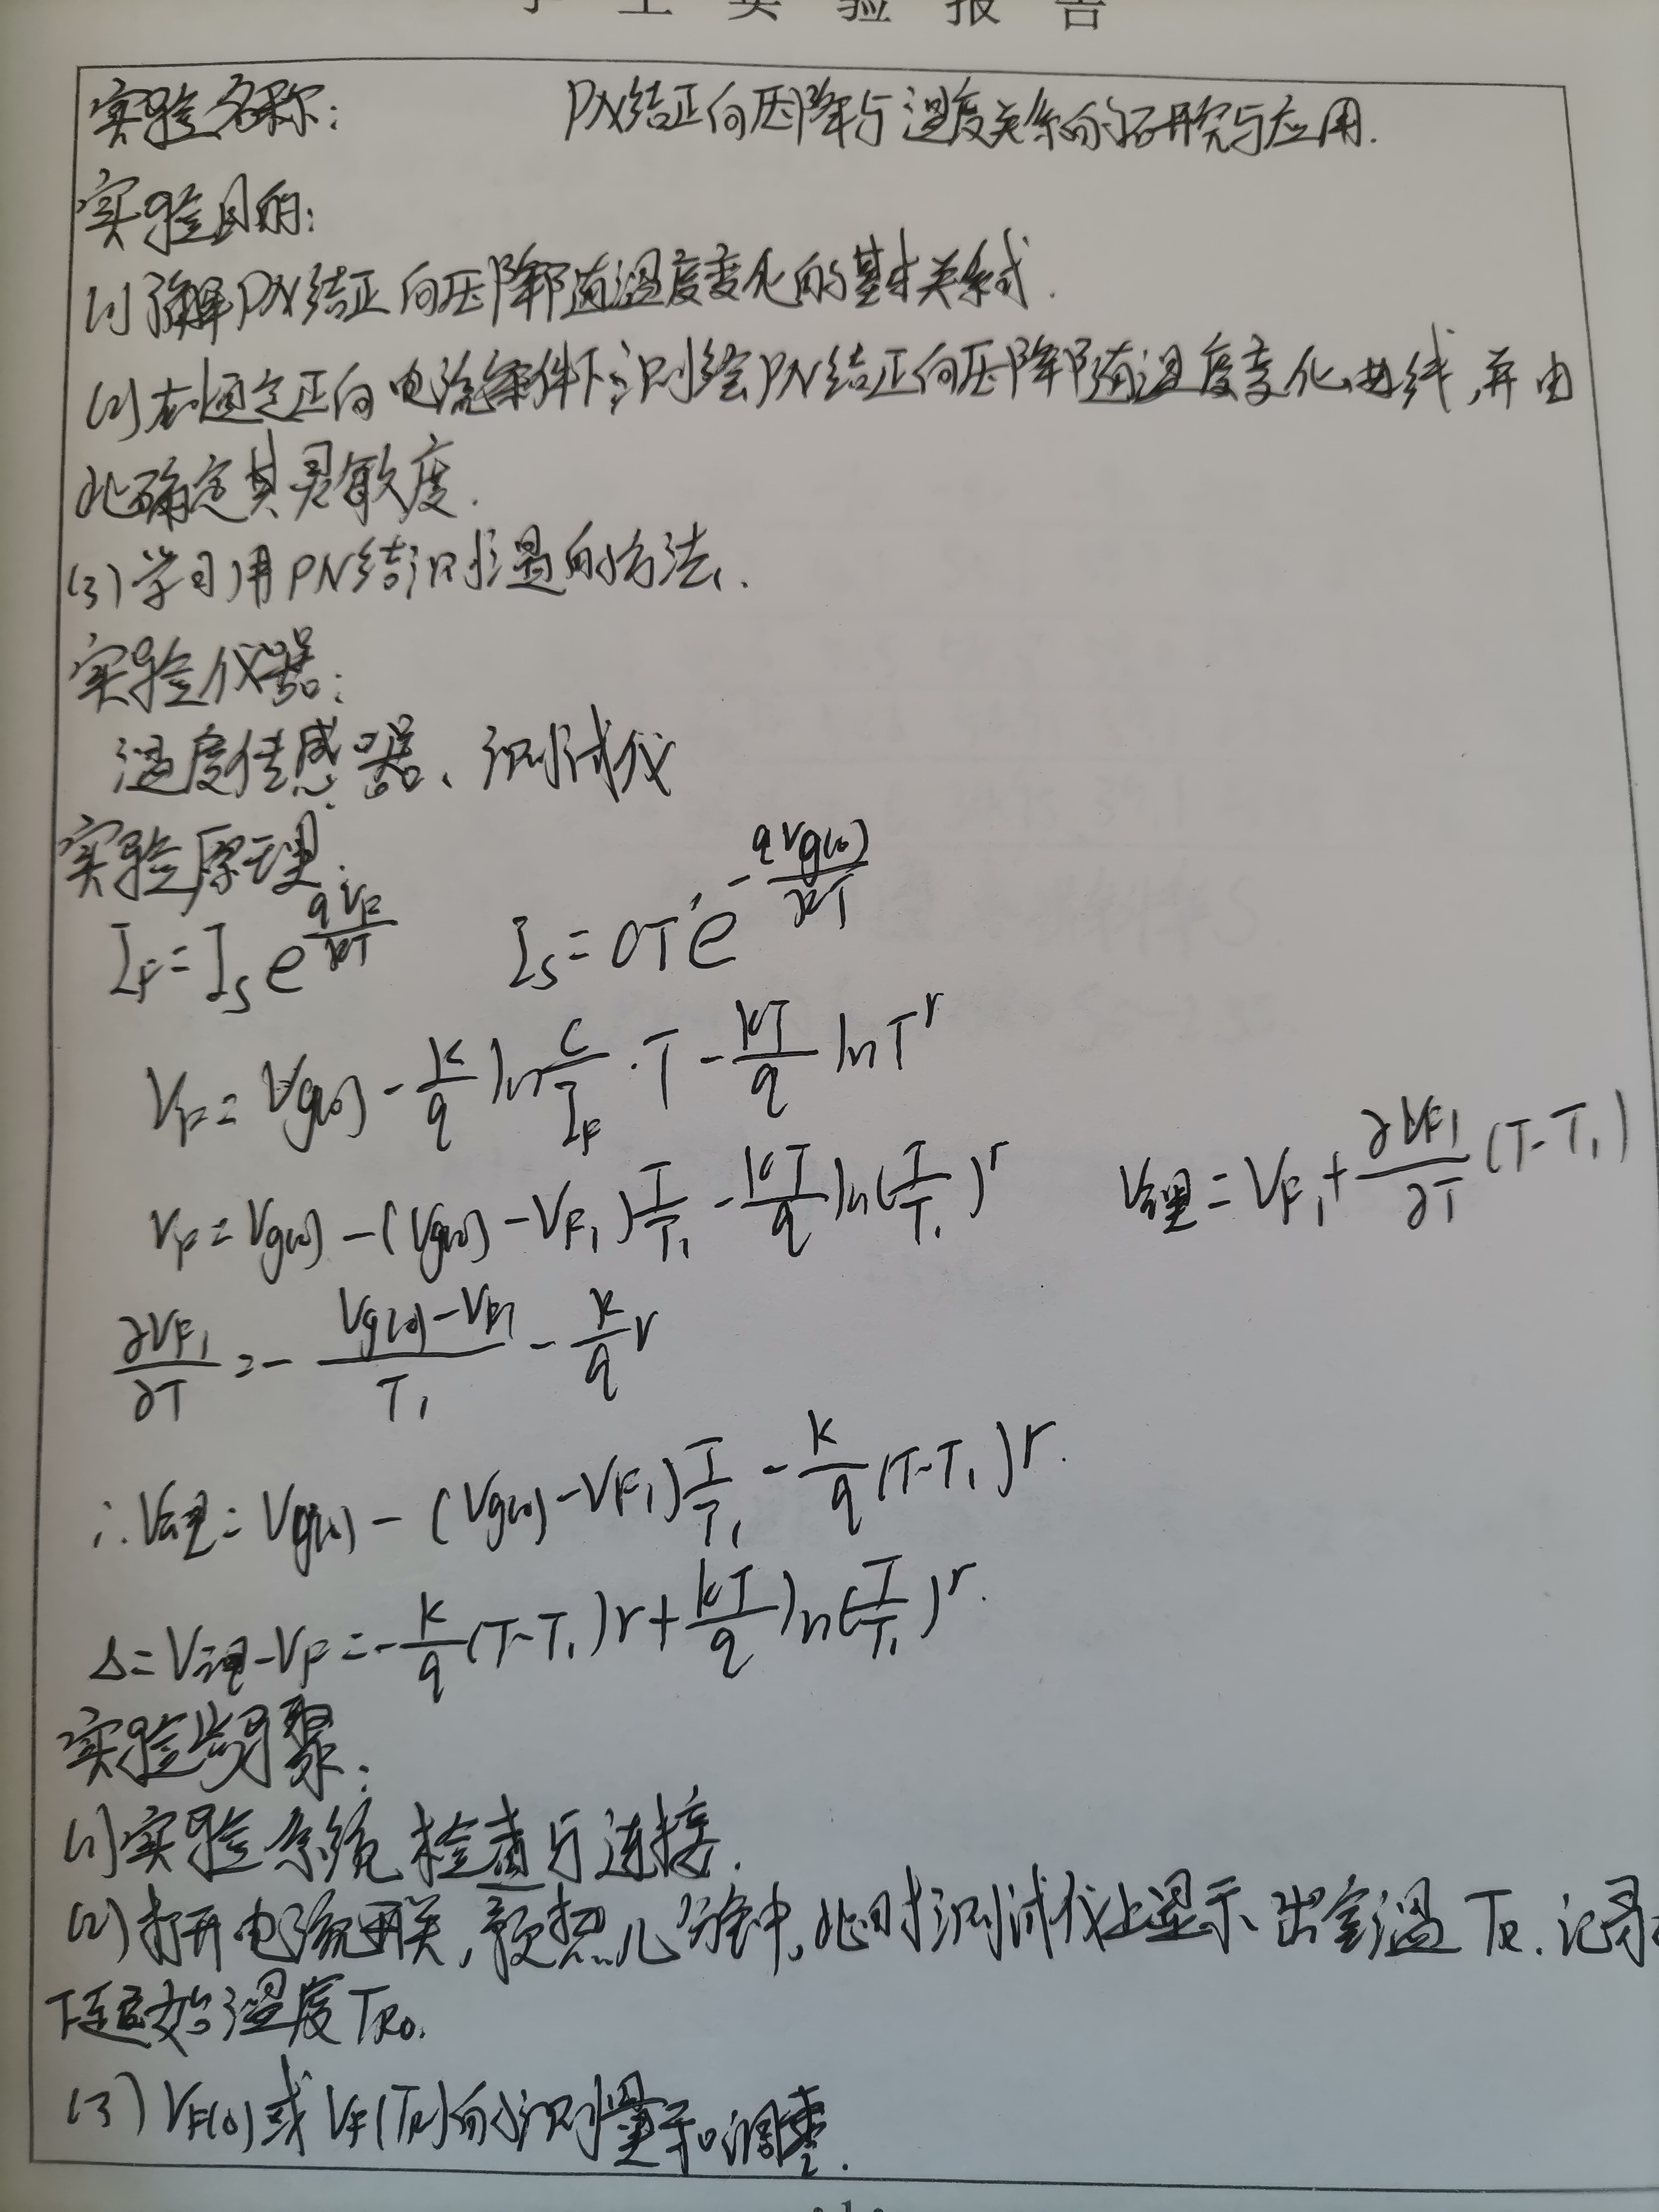 学生实验报告
实验名称: PN结正向压降与温度关系的研究与应用.
实验目的:
(1)了解PN结正向压降随温度变化的基本关系式.
(2)在恒定正向电流条件下,测绘PN结正向压降随温度变化曲线,并由
此确定其灵敏度.
(3)学习用PN结测温的方法.
实验仪器:
温度传感器、测试仪
实验原理:
I_F=I_S e^{qV_F/kT} I_S=CT^r e^{-qVg(0)/kT}
V_F=Vg(0)-\frac{k}{q}ln\frac{C}{I_F}·T-\frac{kT}{q}lnT^r
V_F=Vg(0)-(Vg(0)-V_{F1})\frac{T}{T_1}-\frac{kT}{q}ln(\frac{T}{T_1})^r V理=V_{F1}+\frac{∂V_{F1}}{∂T}(T-T_1)
\frac{∂V_{F1}}{∂T}=-\frac{Vg(0)-V_{F1}}{T_1}-\frac{k}{q}r
∴V理=Vg(0)-(Vg(0)-V_{F1})\frac{T}{T_1}-\frac{k}{q}(T-T_1)r.
Δ=V理-V_F=-\frac{k}{q}(T-T_1)r+\frac{kT}{q}ln(\frac{T}{T_1})^r.
实验步骤:
(1)实验系统检查与连接.
(2)打开电源开关,预热几分钟,此时测试仪上显示出室温T_R.记录
下起始温度T_{R0}.
(3)V_F(0)或V_F(T_R)的测量和调整.
·1·